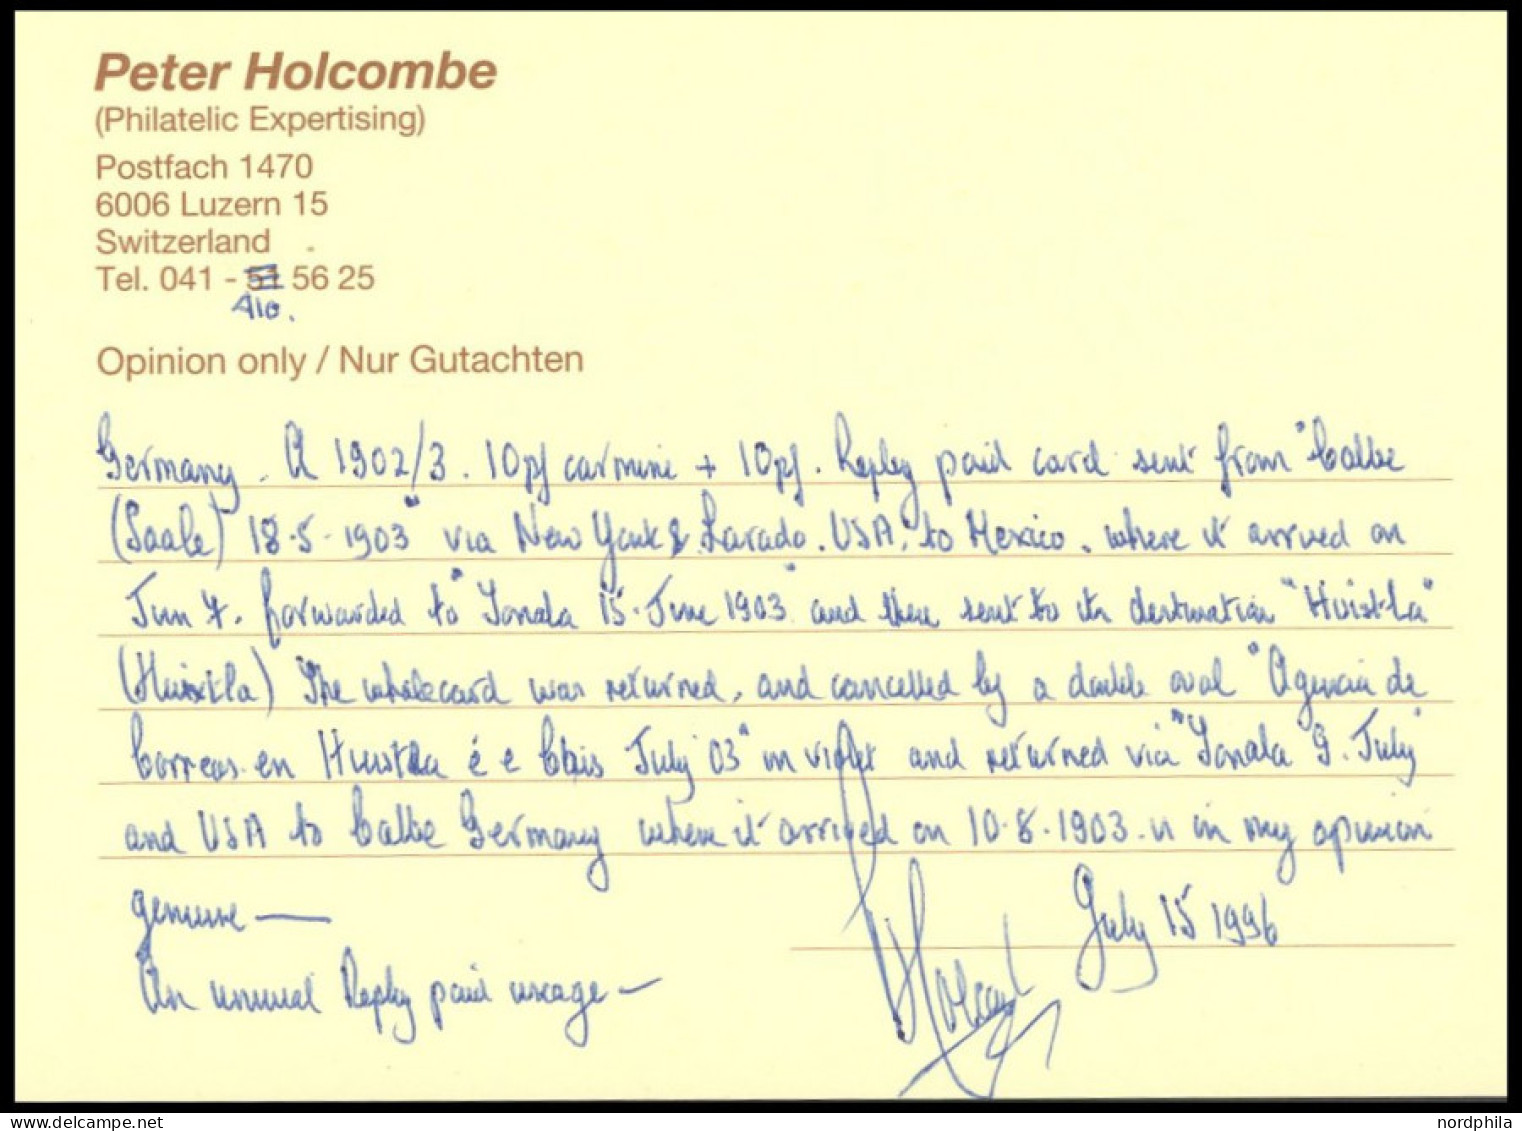 Peter Holcombe
(Philatelic Expertising)
Postfach 1470
6006 Luzern 15
Switzerland
Tel. 041 - 51 56 25
410.
Opinion only / Nur Gutachten
Germany. A 1902/3. 10pf carmine + 10pf. Reply paid card sent from "Calbe
(Saale) 18-5-1903" via New York & Larado. USA, to Mexico, where it arrived on
Jun 7. forwarded to "Tonala 15-June 1903" and then sent to its destination "Huistla"
(Huixtla) The whole card was returned, and cancelled by a double oval "Agencia de
Correos en Huistla é e July 03" in violet and returned via "Tonala 9. July"
and USA to Calbe Germany where it arrived on 10-8-1903. is in my opinion
genuine —
An unusual Reply paid usage —
July 15 1996
Holcombe
nordphila